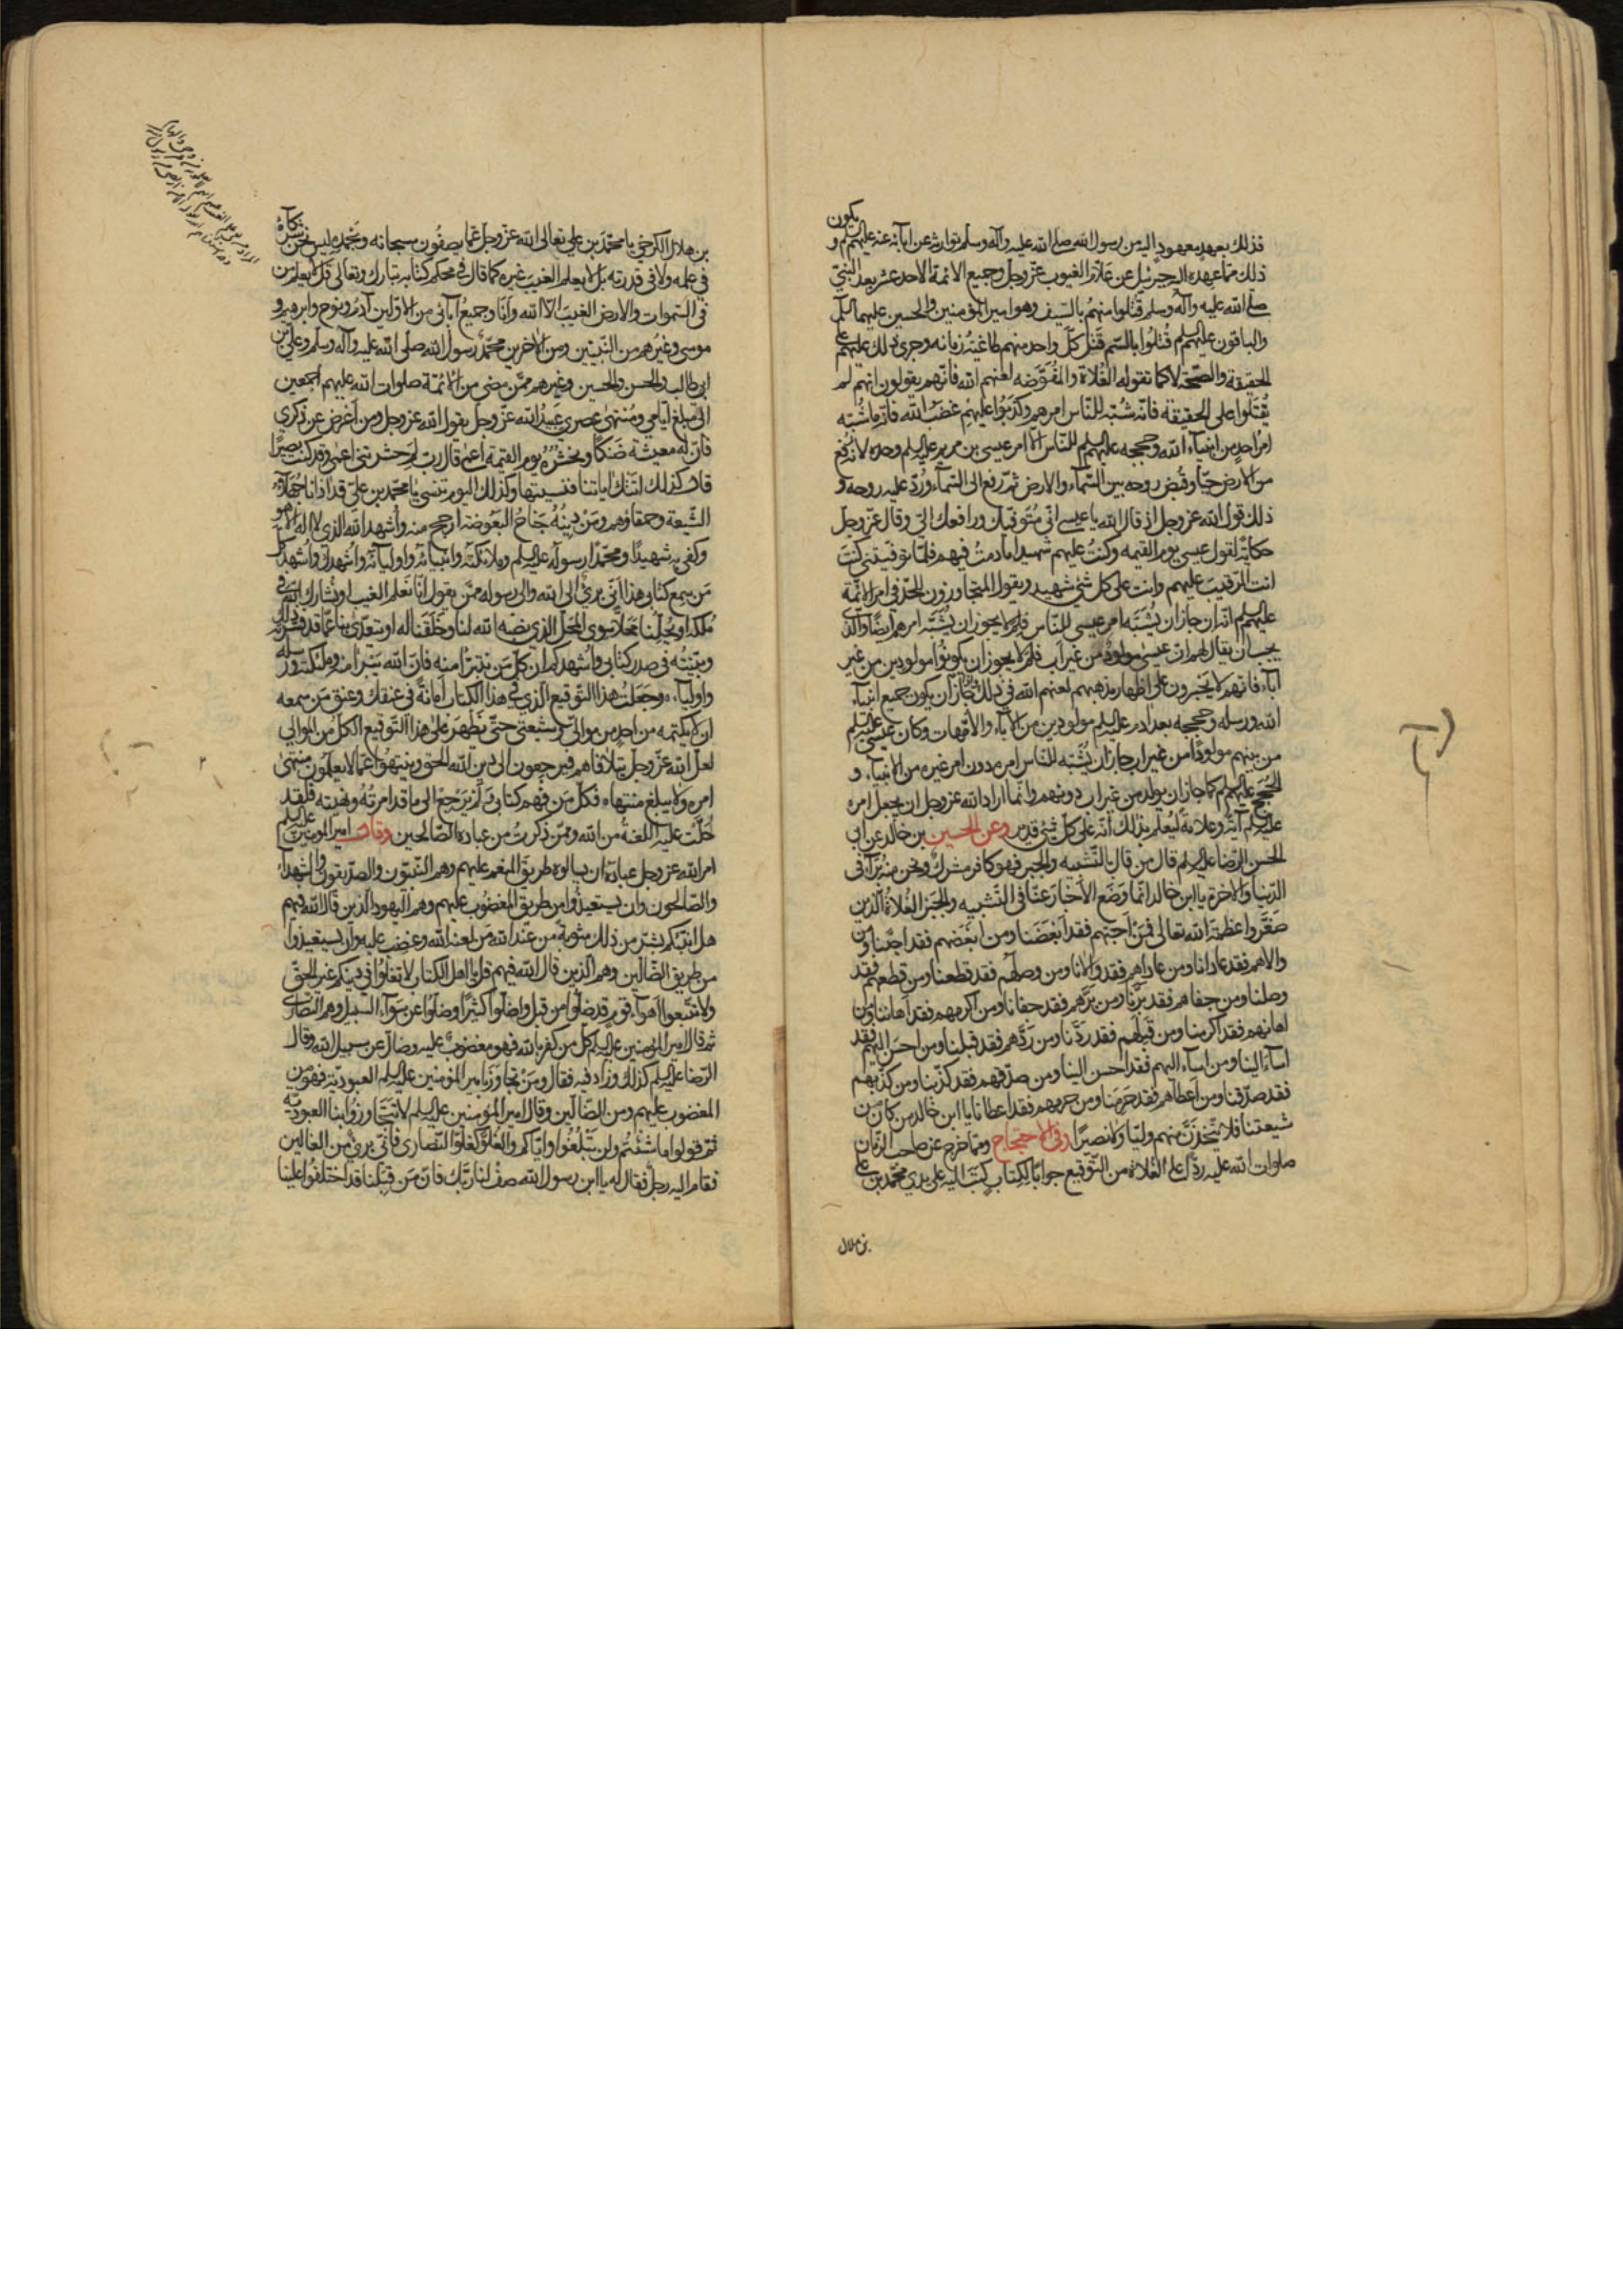 فذلك بعهد معهود اليه من رسول الله صلى الله عليه وآله وسلم توارثه عن آبائه عنه عليهم السلم ويكون
ذلك مما عهده اليه جبرئيل عن علام الغيوب عز وجل وجميع الائمة الاحد عشر بعد النبي
صلى الله عليه وآله وسلم قتلوا منهم بالسيف وهو امير المؤمنين والحسين عليهما السلم
والباقون عليهم السلم قتلوا بالسم قتل كل واحد منهم طاغية زمانه وجرى ذلك عليهم على
الحقيقة والصحة لا كما تقوله الغلاة والمفوضه لعنهم الله فانهم يقولون انهم لم
يقتلوا على الحقيقة فانه شبه للناس امرهم وكذبوا عليهم غضب الله فانه ما شبه
امر احد من انبياء الله وحججه عليهم السلم للناس الا امر عيسى بن مريم عليه السلم وحده لانه رفع
من الارض حيا وقبض روحه بين السماء والارض ثم رفع الى السماء ورد عليه روحه و
ذلك قول الله عز وجل اذ قال الله يا عيسى اني متوفيك ورافعك الي وقال عز وجل
حكاية لقول عيسى يوم القيمة وكنت عليهم شهيدا ما دمت فيهم فلما توفيتني كنت
انت الرقيب عليهم وانت على كل شيء شهيد ويقول المتجاوزون للحد في امر الائمة
عليهم السلم انه ان جاز ان يشبه امر عيسى للناس فلم لا يجوز ان يشبه امرهم ايضا والذي
يجب ان يقال لهم ان عيسى مولود من غير اب فلم لا يجوز ان يكونوا مولودين من غير
آباء فانهم لا يجسرون على اظهار مذهبهم لعنهم الله في ذلك ومتى جاز ان يكون جميع انبياء
الله ورسله وحججه بعد آدم عليه السلم مولودين من الآباء والامهات وكان عيسى عليه السلم
من بينهم مولودا من غير اب جاز ان يشبه للناس امره دون امر غيره من الانبياء و
الحجج عليهم السلم كما جاز ان يولد من غير اب دونهم وانما اراد الله عز وجل ان يجعل امره
عليه السلم آية وعلامة ليعلم بذلك انه على كل شيء قدير وعن الحسين بن خالد عن ابي
الحسن الرضا عليه السلم قال من قال بالتشبيه والجبر فهو كافر مشرك ونحن منه براء في
الدنيا والاخرة يا ابن خالد انما وضع الاخبار عنا في التشبيه والجبر الغلاة الذين
صغروا عظمة الله تعالى فمن احبهم فقد ابغضنا ومن ابغضهم فقد احبنا ومن
والاهم فقد عادانا ومن عاداهم فقد والانا ومن وصلهم فقد قطعنا ومن قطعهم فقد
وصلنا ومن جفاهم فقد برنا ومن برهم فقد جفانا ومن اكرمهم فقد اهاننا ومن
اهانهم فقد اكرمنا ومن قبلهم فقد ردنا ومن ردهم فقد قبلنا ومن احسن اليهم فقد
اساء الينا ومن اساء اليهم فقد احسن الينا ومن صدقهم فقد كذبنا ومن كذبهم
فقد صدقنا ومن اعطاهم فقد حرمنا ومن حرمهم فقد اعطانا يا ابن خالد من كان من
شيعتنا فلا يتخذن منهم وليا ولا نصيرا وفي الاحتجاج ومما خرج عن صاحب الزمان
صلوات الله عليه ردا على الغلاة من التوقيع جوابا لكتاب كتب اليه على يدي محمد بن علي
بن هلال
بن هلال الكرخي يا محمد بن علي تعالى الله عز وجل عما يصفون سبحانه وبحمده ليس نحن شركاؤه
في علمه ولا في قدرته بل لا يعلم الغيب غيره كما قال في محكم كتابه تبارك وتعالى قل لا يعلم من
في السموات والارض الغيب الا الله وانا وجميع آبائي من الاولين آدم ونوح وابرهيم و
موسى وغيرهم من النبيين ومن الاخرين محمد رسول الله صلى الله عليه وآله وسلم وعلي بن
ابي طالب والحسن والحسين وغيرهم ممن مضى من الائمة صلوات الله عليهم اجمعين
الى مبلغ ايامي ومنتهى عصري عبيد الله عز وجل يقول الله عز وجل ومن اعرض عن ذكري
فان له معيشة ضنكا ونحشره يوم القيمة اعمى قال رب لم حشرتني اعمى وقد كنت بصيرا
قال كذلك اتتك اياتنا فنسيتها وكذلك اليوم تنسى يا محمد بن علي قد آذانا جهلاء
الشيعة وحمقاؤهم ومن دينه جناح البعوضة ارجح منه واشهد الله الذي لا اله الا هو
وكفى به شهيدا ومحمدا رسوله عليه السلم وملائكته وانبيائه واوليائه واشهدك واشهد كل
من سمع كتابي هذا اني بريء الى الله والى رسوله ممن يقول انا نعلم الغيب او نشارك الله في
ملكه او يحلنا محلا سوى المحل الذي نصبه الله لنا وخلقنا له او يتعدى بنا عما قد فسرته لك
وبينته في صدر كتابي واشهدكم ان كل من نتبرأ منه فان الله يبرأ منه وملئكته ورسله
واولياءه وجعلت هذا التوقيع الذي في هذا الكتاب امانة في عنقك وعنق من سمعه
ان لا يكتمه من احد من موالي وشيعتي حتى يظهر على هذا التوقيع الكل من الموالي
لعل الله عز وجل يتلافاهم فيرجعون الى دين الله الحق وينتهوا عما لا يعلمون منتهى
امره ولا يبلغ منتهاه فكل من فهم كتابي ولم يرجع الى ما قد امرته ونهيته فلقد
حلت عليه اللعنة من الله وممن ذكرت من عباده الصالحين وقال امير المؤمنين عليه السلم
امر الله عز وجل عباده ان يسالوه طريق المنعم عليهم وهم النبيون والصديقون والشهداء
والصالحون وان يستعيذوا من طريق المغضوب عليهم وهم اليهود الذين قال الله فيهم
هل انبئكم بشر من ذلك مثوبة عند الله من لعنه الله وغضب عليه وان يستعيذوا
من طريق الضالين وهم الذين قال الله فيهم قل يا اهل الكتاب لا تغلوا في دينكم غير الحق
ولا تتبعوا اهواء قوم قد ضلوا من قبل واضلوا كثيرا وضلوا عن سواء السبيل وهم النصارى
ثم قال امير المؤمنين عليه السلم كل من كفر بالله فهو مغضوب عليه وضال عن سبيل الله وقال
الرضا عليه السلم كذلك وزاد فيه فقال ومن تجاوز بامير المؤمنين عليه السلم العبودية فهو من
المغضوب عليهم ومن الضالين وقال امير المؤمنين عليه السلم لا تتجاوزوا بنا العبودية
ثم قولوا ما شئتم ولن تبلغوا واياكم والغلو كغلو النصارى فاني بريء من الغالين
فقام اليه رجل فقال له يا ابن رسول الله صف لنا ربك فان من قبلنا قد اختلفوا علينا